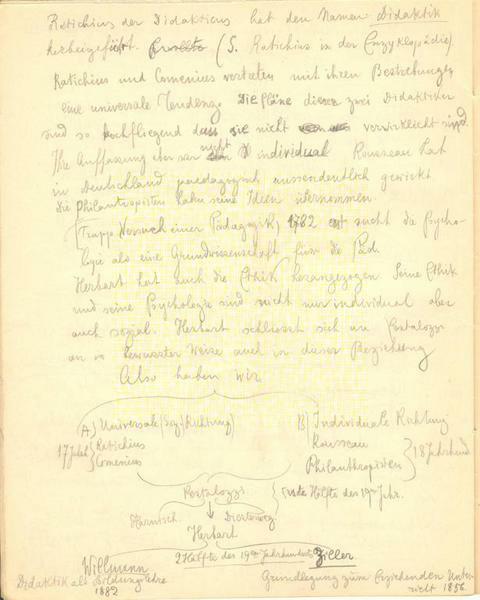 Ratichius der Didakticus hat den Namen Didaktik
herbeigeführt. (S. Ratichius in der Enzyklopädie)
Ratichius und Comenius vertreten mit ihren Bestrebungen
eine universale Tendenz. Die Pläne dieser zwei Didaktiker
sind so hochfliegend dass sie nicht verwirklicht sind.
Ihre Auffassung aber war nicht individual Rousseau hat
in Deutschland paedagogisch ausserdentlich gewirkt
die Philantropisten habn seine Ideen übernommen.
Trapp Versuch einer Pädagogik, 1782 sucht die Psycho-
logie als eine Grundwissenschaft für die Päd.
Herbart hat auch die Ethik herangezogen. Seine Ethik
und seine Psychologie sind nicht nur individual aber
auch sozial. Herbart schliesst sich an Pestalozzi
an in bewusster Weise auch in dieser Beziehung
Also haben wir.
A) Universale (Soz) Richtung)
B) Individuale Richtung
17 Jahrh Ratichius
Comenius
Rousseau
Philanthropisten
18 Jahrhund
Pestalozzi
erste Hälfte des 19ten Jahr.
Harnisch. Diesterweg
Herbart
2 Hälfte des 19ten Jahrhunderts
Willmann
Ziller
Didaktik als Bildungslehre
1882
Grundlegung zum Erziehenden Unter-
richt 1856